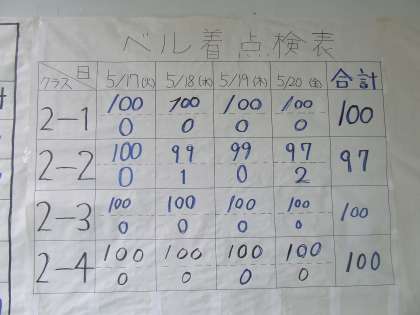 ベル着点検表
クラス 日 5/17(火) 5/18(水) 5/19(木) 5/20(金) 合計
2-1 100 100 100 100 100
0 0 0 0
2-2 100 99 99 97 97
0 1 0 2
2-3 100 100 100 100 100
0 0 0 0
2-4 100 100 100 100 100
0 0 0 0